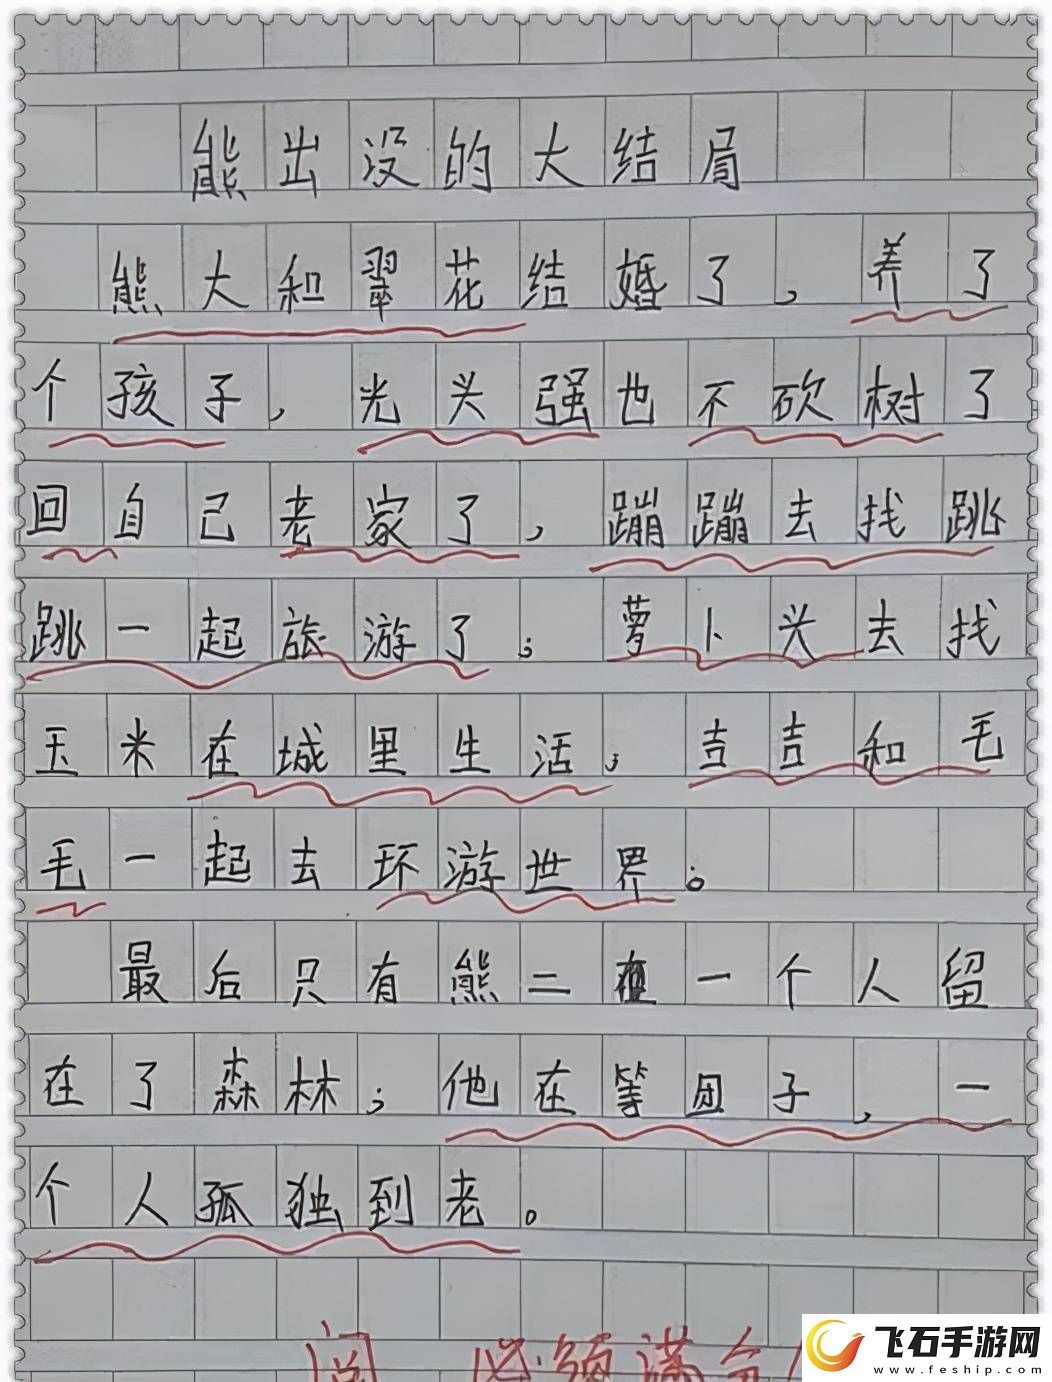 熊出没的大结局
熊大和翠花结婚了，养了
个孩子，光头强也不砍树了
回自己老家了，蹦蹦去找跳
跳一起旅游了；萝卜头去找
玉米在城里生活；吉吉和毛
毛一起去环游世界。
最后只有熊二一个人留
在了森林；他在等团子，一
个人孤独到老。
阅 必须满分
飞石手游网
www.feship.com